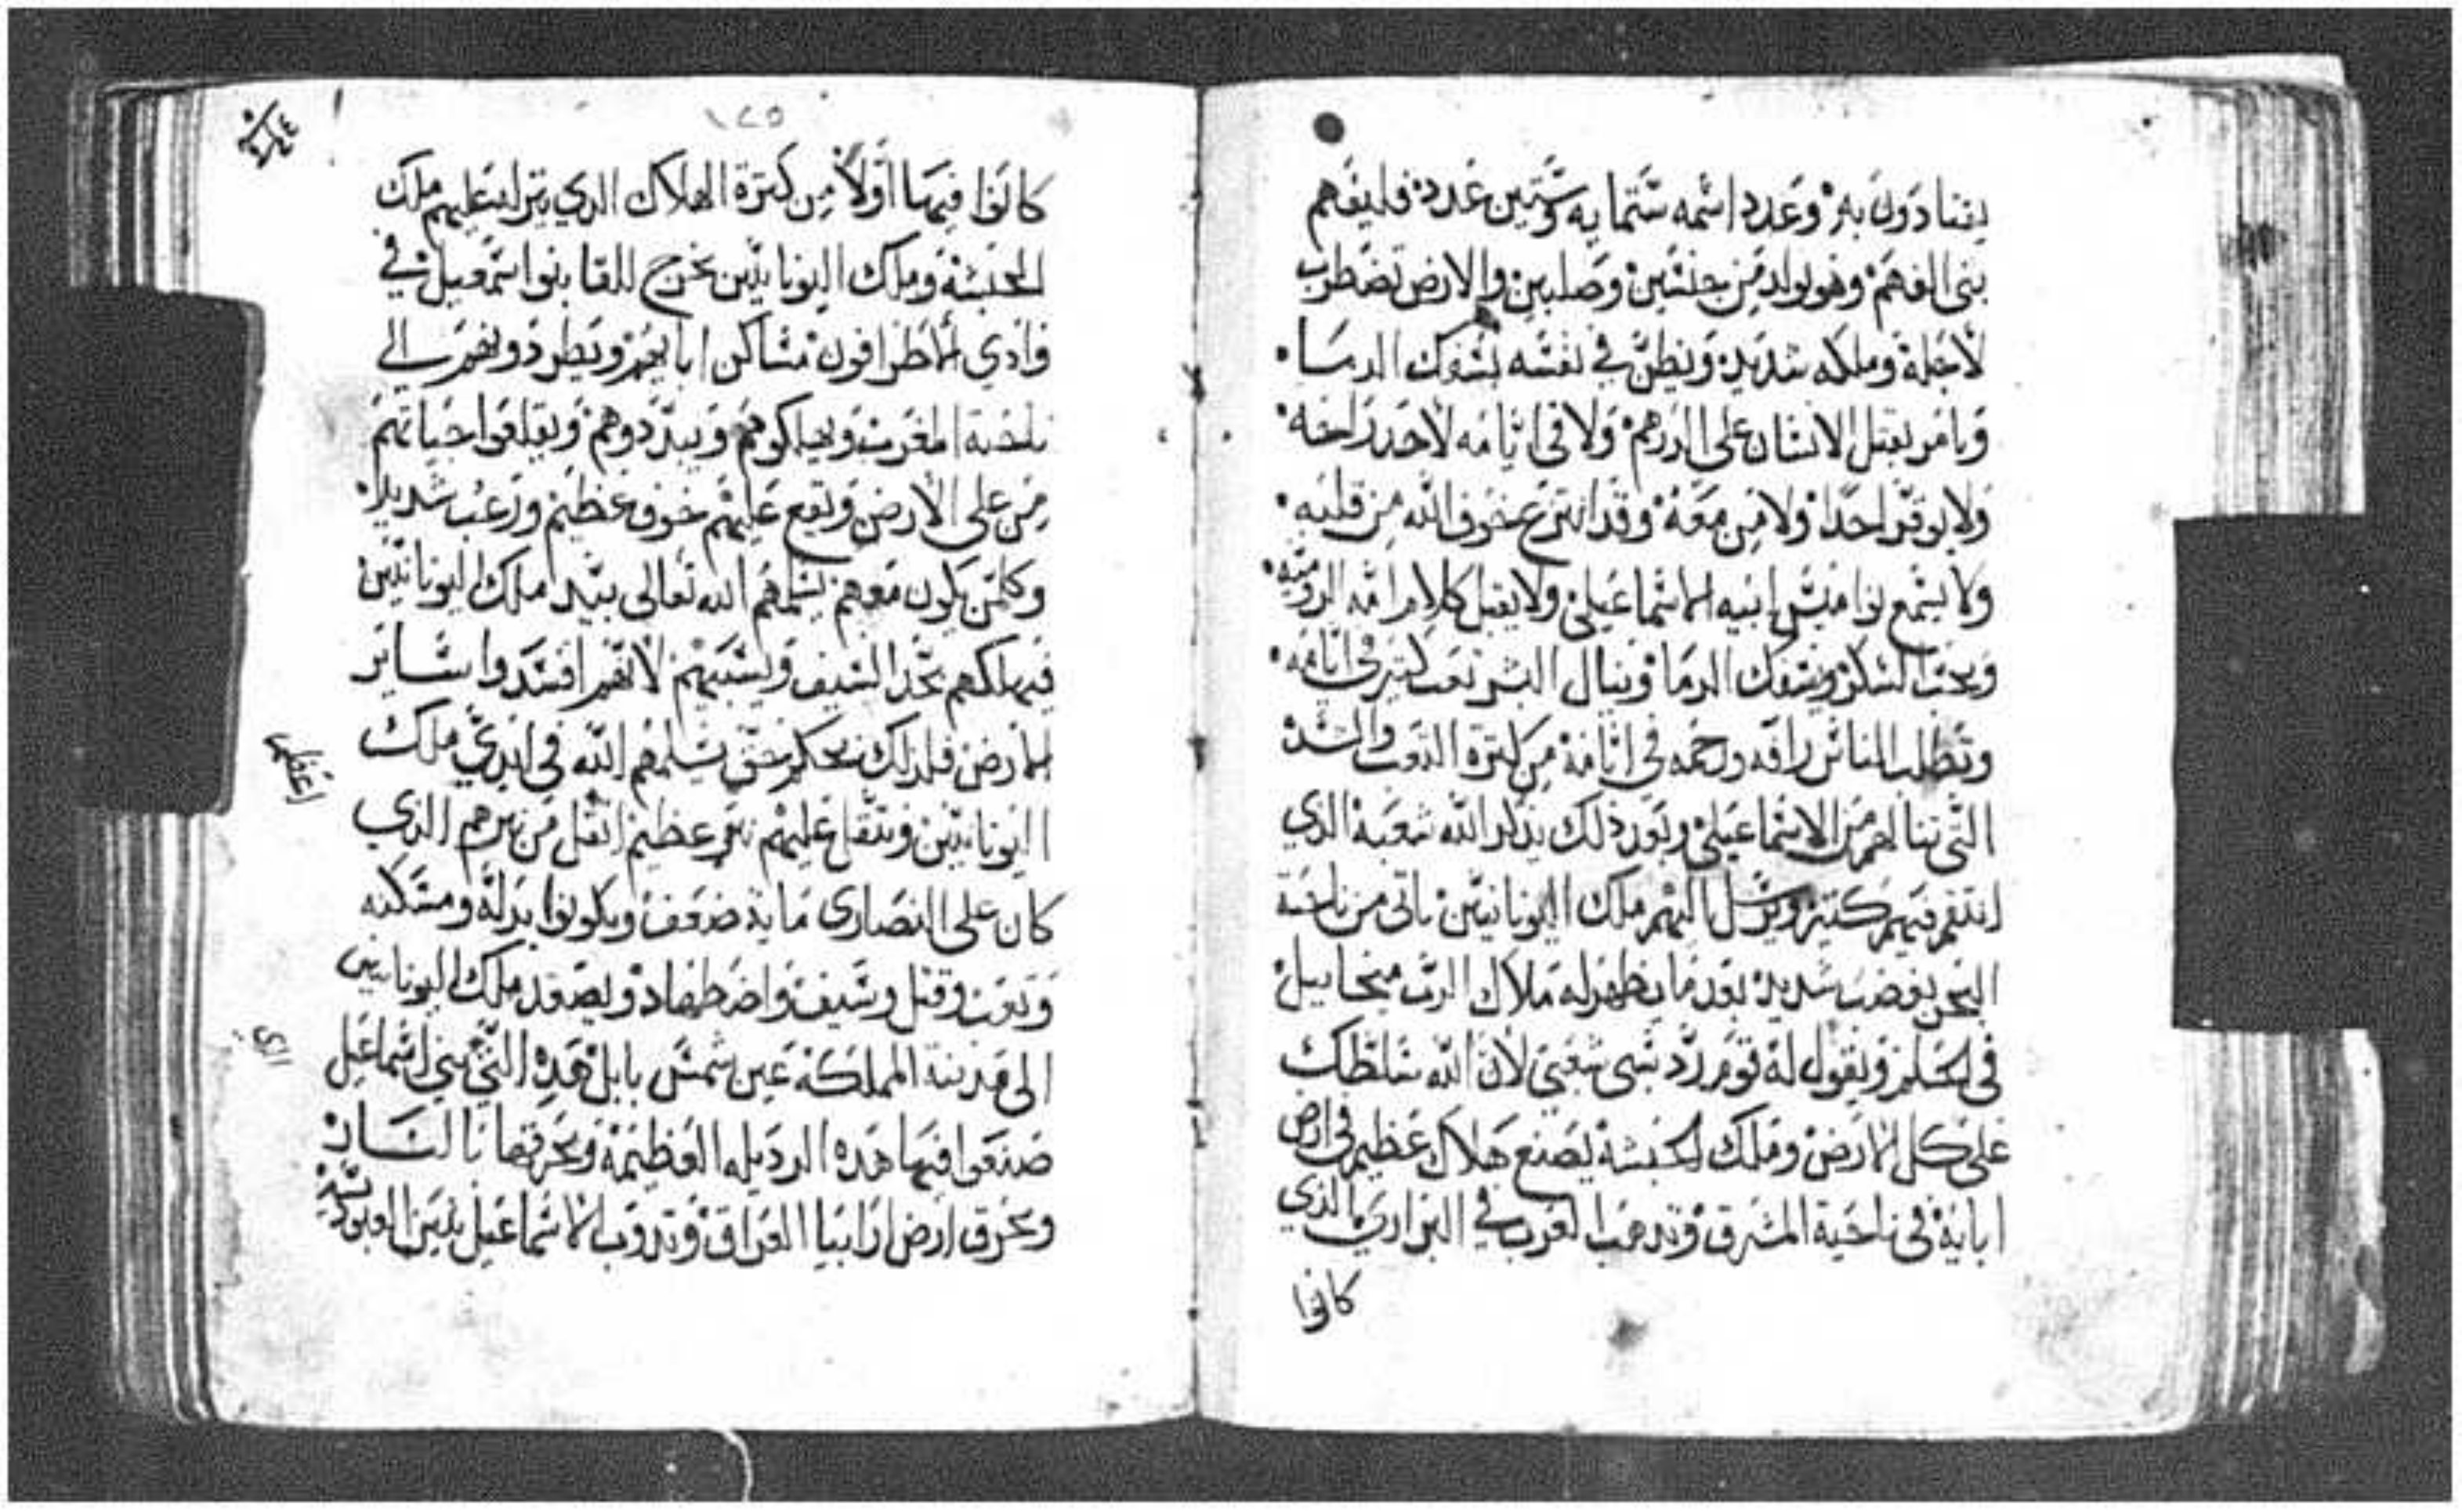 يتنادون به وعدد اسمه ستمايه وستين عدد فليفهم
بنى الفهم وهو يولد من جنسين وصلبين والارض تضطرب
لاجله وملكه شديد ويظن في نفسه بسفك الدما
ويامر بقتل الانسان على الدرهم ولا في ايامه لاحد راحه
ولا يوقر احدا ولا من معه وقد انتزع خوف الله من قلبه
ولا يسمع نواميس ابيه الاسماعيلي ولا يقبل كلام امه الروميه
ويحب السكر وسفك الدما وينال البشر تعب كتير في ايامه
وتطلب الناس رافه ورحمه في ايامه من كترة التعب والشد
التي تنالهم من الاسماعيلي وبعد ذلك يذكر الله شعبه الذي
انتقم فيهم كتير ويرسل اليهم ملك اليونانيين ياتي من ناحية
البحر بغضب شديد بعد ما يظهر له ملاك الرب ميخاييل
في الحلم ويقول له قوم رد سبي شعبي لان الله سلطك
على كل الارض وملك الحبشة يصنع هلاك عظيم في ارض
ابايه في ناحية المشرق وتدهب العرب في البراري الذي
كانوا
١٢٥
كانوا فيها اولا من كترة الهلاك الدي ينزل عليهم ملك
الحبشة وملك اليونانيين يخرج للقا بنوا اسمعيل في
وادي الاطرافون مساكن ابايهم ويطردونهم الى
ناحية المغرب ويهلكوهم ويبددوهم ويقلعوا حياتهم
من على الارض وتقع عليهم خوف عظيم ورعب شديد
وكلمن يكون معهم يسلمهم الله تعالى بيد ملك اليونانيين
فيهلكهم بحد السيف ويسبيهم لانهم افسدوا ساير
الارض فلدلك نحكم بحق يسلمهم الله في ايدي ملك
اليونانيين ويتقل عليهم نير عظيم اتقل من نيرهم الذي
كان على النصارى ماية ضعف ويكونوا بدله ومسكنه
وتعب وقتل وسيف واضطهاد ويصعد ملك اليونانيين
الى مدينة المملكه عين شمس بابل هده التي بني اسماعيل
صنعوا فيها هده الرديله العظيمه ويحرقها بالنار
ويحرق ارض ارابيا العراق وتدوب الاسماعيل بنير العبوديه